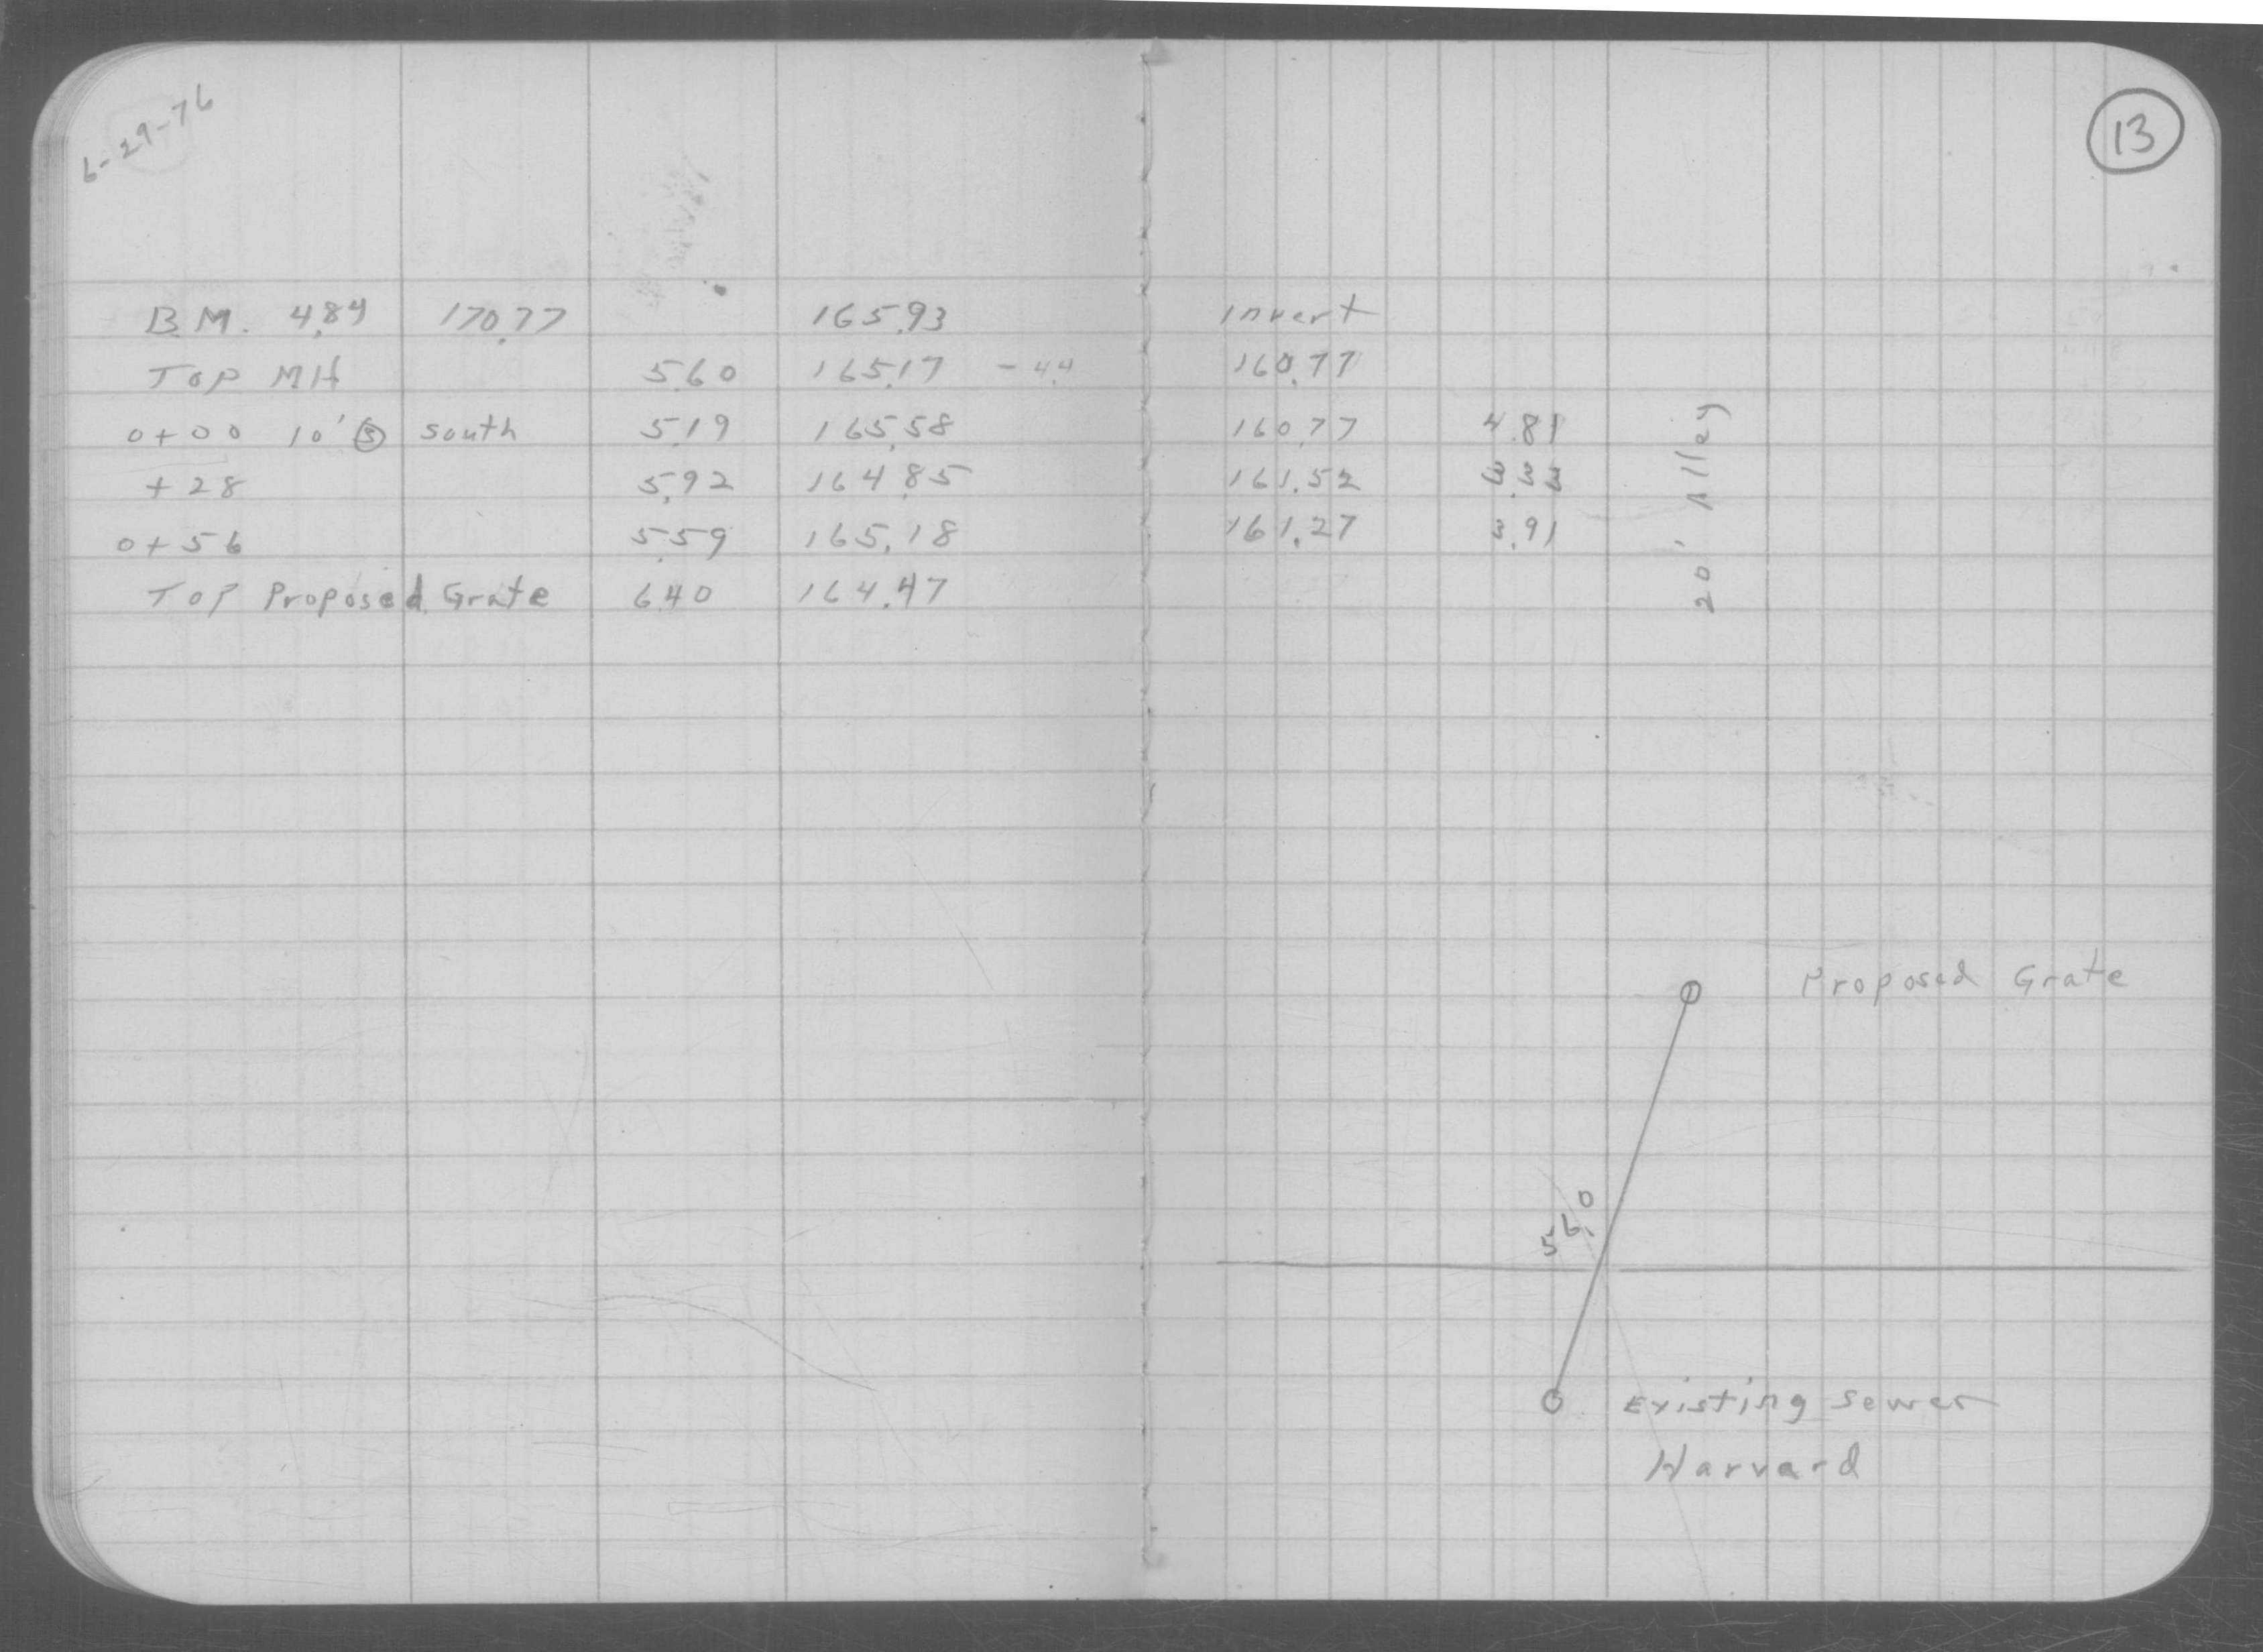 6-29-76
13
B.M. 4.84 170.77 165.93 invert
Top MH 5.60 165.17 - 4.4 160.77
0+00 10' Ⓢ south 5.19 165.58 160.77 4.81
+28 5.92 164.85 161.52 3.33
0+56 5.59 165.18 161.27 3.91
Top Proposed Grate 6.40 164.47
20' Alley
Proposed Grate
56.0
Existing Sewer
Harvard